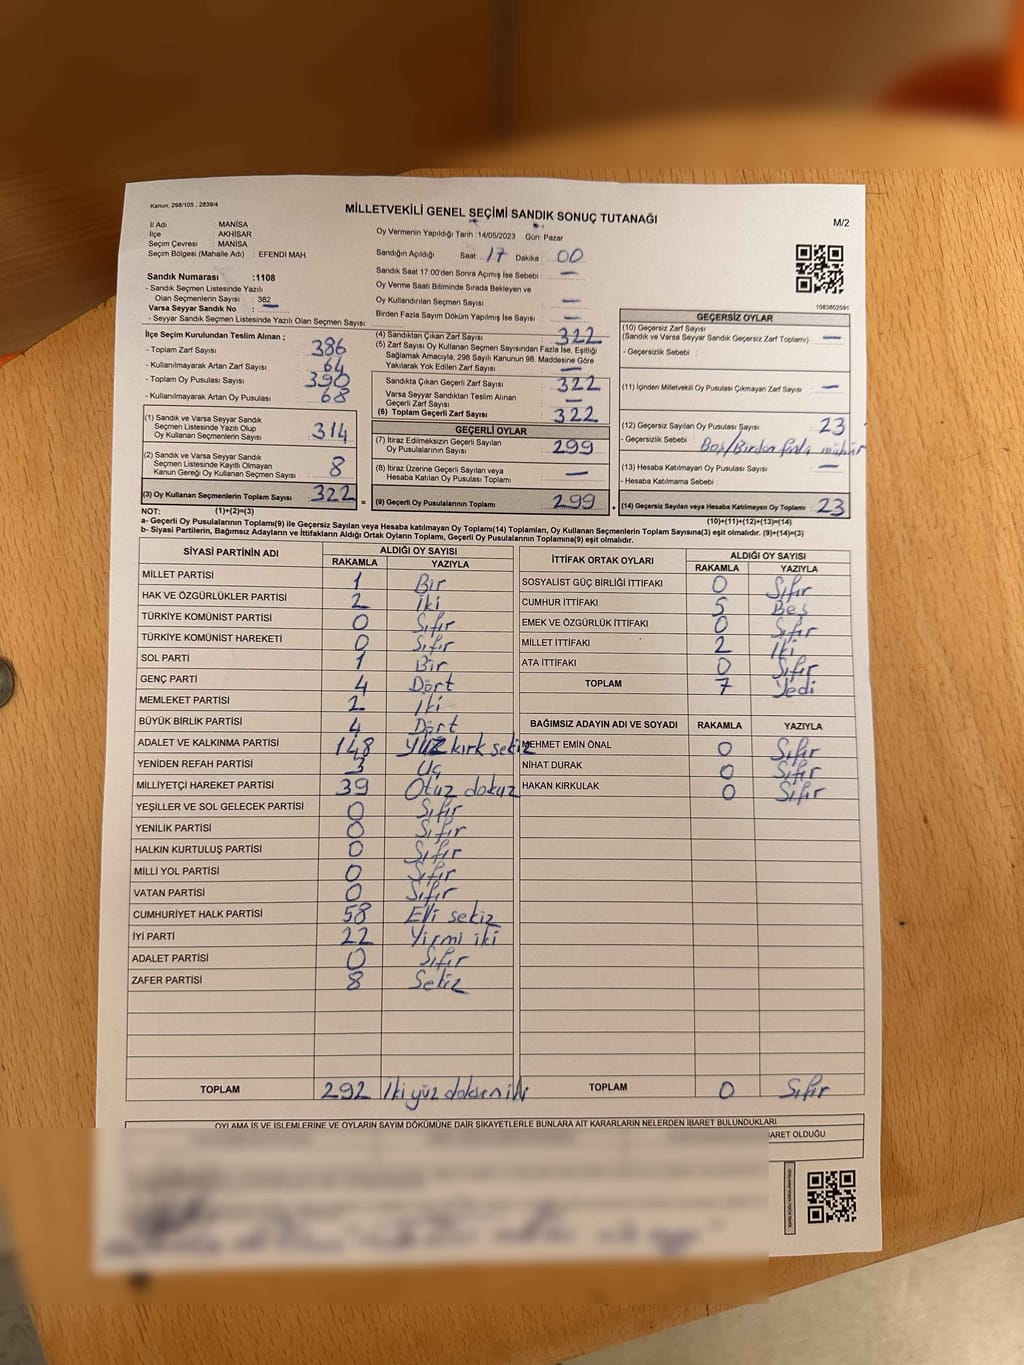 Kanun: 298/105 , 2839/4
MİLLETVEKİLİ GENEL SEÇİMİ SANDIK SONUÇ TUTANAĞI
M/2
İl Adı : MANİSA
İlçe : AKHİSAR
Seçim Çevresi : MANİSA
Seçim Bölgesi (Mahalle Adı) : EFENDİ MAH.
Sandık Numarası :1108
- Sandık Seçmen Listesinde Yazılı
Olan Seçmenlerin Sayısı : 382
Varsa Seyyar Sandık No : —
- Seyyar Sandık Seçmen Listesinde Yazılı Olan Seçmen Sayısı:
Oy Vermenin Yapıldığı Tarih :14/05/2023 Gün: Pazar
Sandığın Açıldığı Saat: 17 Dakika : 00
Sandık Saat 17:00'den Sonra Açılmış İse Sebebi : —
Oy Verme Saati Bitiminde Sırada Bekleyen ve
Oy Kullandırılan Seçmen Sayısı : —
Birden Fazla Sayım Döküm Yapılmış İse Sayısı : —
1063602591
İlçe Seçim Kurulundan Teslim Alınan ;
- Toplam Zarf Sayısı : 386
- Kullanılmayarak Artan Zarf Sayısı : 64
- Toplam Oy Pusulası Sayısı : 390
- Kullanılmayarak Artan Oy Pusulası : 68
(1) Sandık ve Varsa Seyyar Sandık
Seçmen Listesinde Yazılı Olup
Oy Kullanan Seçmenlerin Sayısı : 314
(2) Sandık ve Varsa Seyyar Sandık
Seçmen Listesinde Kayıtlı Olmayan
Kanun Gereği Oy Kullanan Seçmen Sayısı : 8
(3) Oy Kullanan Seçmenlerin Toplam Sayısı : 322
(4) Sandıktan Çıkan Zarf Sayısı : 322
(5) Zarf Sayısı Oy Kullanan Seçmen Sayısından Fazla İse, Eşitliği
Sağlamak Amacıyla, 298 Sayılı Kanunun 98. Maddesine Göre
Yakılarak Yok Edilen Zarf Sayısı : —
Sandıkta Çıkan Geçerli Zarf Sayısı : 322
Varsa Seyyar Sandıktan Teslim Alınan
Geçerli Zarf Sayısı : —
(6) Toplam Geçerli Zarf Sayısı : 322
GEÇERLİ OYLAR
(7) İtiraz Edilmeksizin Geçerli Sayılan
Oy Pusulalarının Sayısı : 299
(8) İtiraz Üzerine Geçerli Sayılan veya
Hesaba Katılan Oy Pusulası Toplamı : —
= (9) Geçerli Oy Pusulalarının Toplamı : 299
GEÇERSİZ OYLAR
(10) Geçersiz Zarf Sayısı
(Sandık ve Varsa Seyyar Sandık Geçersiz Zarf Toplamı) : —
- Geçersizlik Sebebi :
(11) İçinden Milletvekili Oy Pusulası Çıkmayan Zarf Sayısı : —
(12) Geçersiz Sayılan Oy Pusulası Sayısı : 23
- Geçersizlik Sebebi : Boş/Birden fazla mühür
(13) Hesaba Katılmayan Oy Pusulası Sayısı : —
- Hesaba Katılmama Sebebi :
+ (14) Geçersiz Sayılan veya Hesaba Katılmayan Oy Toplamı : 23
NOT: (1)+(2)=(3)
(10)+(11)+(12)+(13)=(14)
a- Geçerli Oy Pusulalarının Toplamı(9) ile Geçersiz Sayılan veya Hesaba katılmayan Oy Toplamı(14) Toplamları, Oy Kullanan Seçmenlerin Toplam Sayısına(3) eşit olmalıdır. (9)+(14)=(3)
b- Siyasi Partilerin, Bağımsız Adayların ve İttifakların Aldığı Ortak Oyların Toplamı, Geçerli Oy Pusulalarının Toplamına(9) eşit olmalıdır.
SİYASİ PARTİNİN ADI ALDIĞI OY SAYISI
RAKAMLA YAZIYLA
MİLLET PARTİSİ 1 Bir
HAK VE ÖZGÜRLÜKLER PARTİSİ 2 İki
TÜRKİYE KOMÜNİST PARTİSİ 0 Sıfır
TÜRKİYE KOMÜNİST HAREKETİ 0 Sıfır
SOL PARTİ 1 Bir
GENÇ PARTİ 4 Dört
MEMLEKET PARTİSİ 2 İki
BÜYÜK BİRLİK PARTİSİ 4 Dört
ADALET VE KALKINMA PARTİSİ 148 Yüz kırk sekiz
YENİDEN REFAH PARTİSİ 3 Üç
MİLLİYETÇİ HAREKET PARTİSİ 39 Otuz dokuz
YEŞİLLER VE SOL GELECEK PARTİSİ 0 Sıfır
YENİLİK PARTİSİ 0 Sıfır
HALKIN KURTULUŞ PARTİSİ 0 Sıfır
MİLLİ YOL PARTİSİ 0 Sıfır
VATAN PARTİSİ 0 Sıfır
CUMHURİYET HALK PARTİSİ 58 Elli sekiz
İYİ PARTİ 22 Yirmi iki
ADALET PARTİSİ 0 Sıfır
ZAFER PARTİSİ 8 Sekiz
TOPLAM 292 İki yüz doksan iki
İTTİFAK ORTAK OYLARI ALDIĞI OY SAYISI
RAKAMLA YAZIYLA
SOSYALİST GÜÇ BİRLİĞİ İTTİFAKI 0 Sıfır
CUMHUR İTTİFAKI 5 Beş
EMEK VE ÖZGÜRLÜK İTTİFAKI 0 Sıfır
MİLLET İTTİFAKI 2 İki
ATA İTTİFAKI 0 Sıfır
TOPLAM 7 Yedi
BAĞIMSIZ ADAYIN ADI VE SOYADI RAKAMLA YAZIYLA
MEHMET EMİN ÖNAL 0 Sıfır
NİHAT DURAK 0 Sıfır
HAKAN KIRKULAK 0 Sıfır
TOPLAM 0 Sıfır
OYLAMA İŞ VE İŞLEMLERİNE VE OYLARIN SAYIM DÖKÜMÜNE DAİR ŞİKAYETLERLE BUNLARA AİT KARARLARIN NELERDEN İBARET BULUNDUKLARI
BARET OLDUĞU